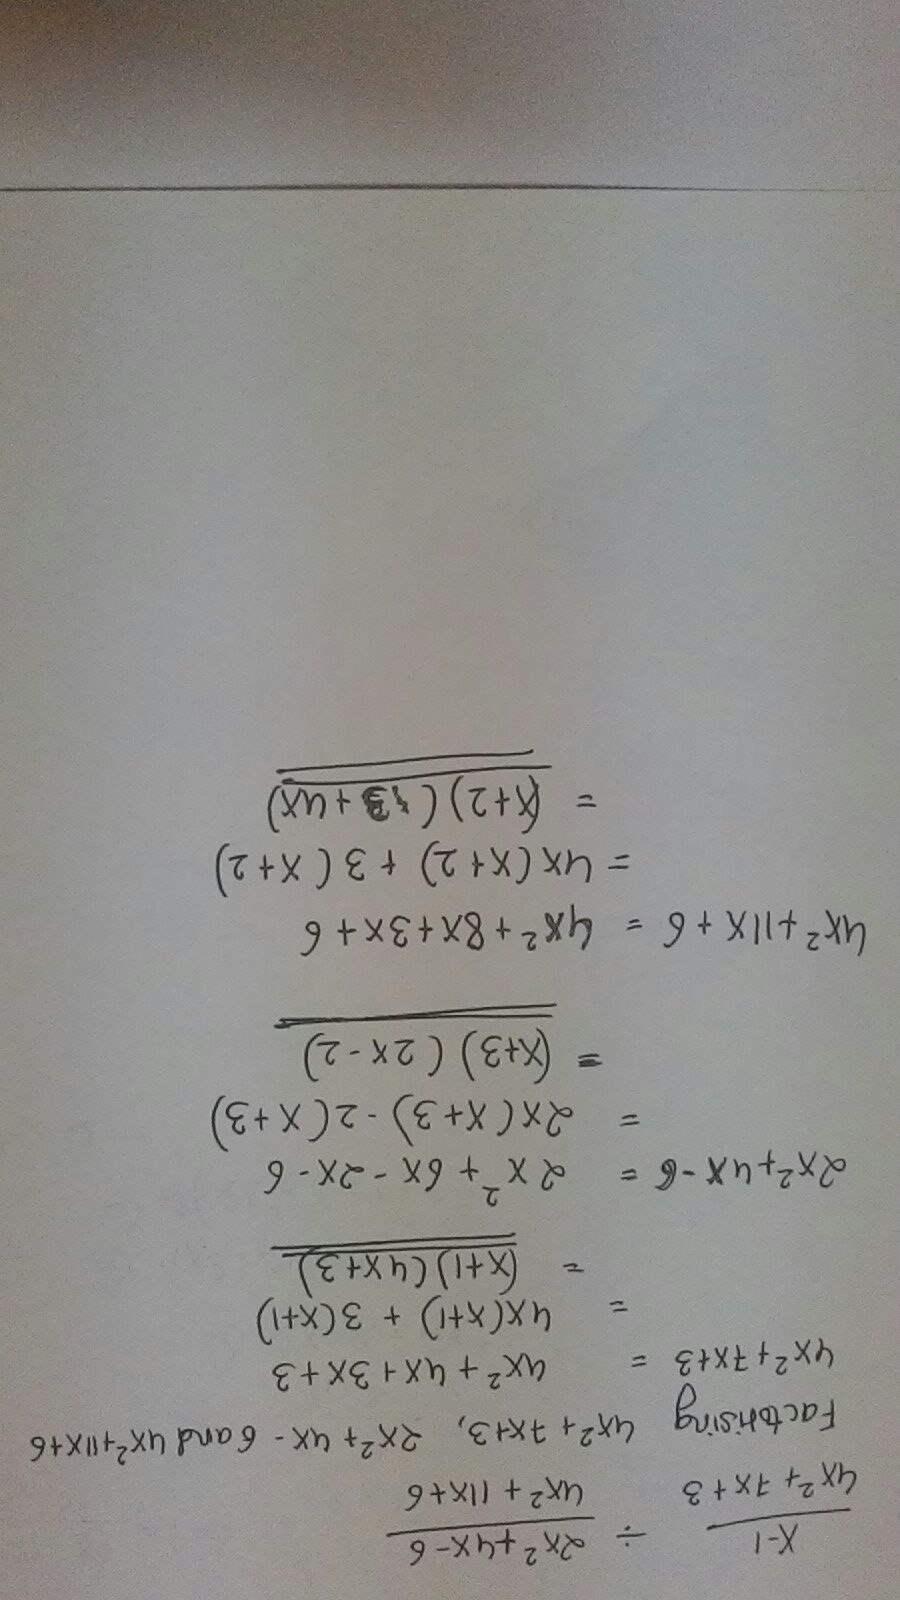 x-1 ÷ 2x²+4x-6
4x²+7x+3 4x²+11x+6
Factorising 4x²+7x+3, 2x²+4x-6 and 4x²+11x+6
4x²+7x+3 = 4x²+4x+3x+3
= 4x(x+1) + 3(x+1)
= (x+1)(4x+3)
2x²+4x-6 = 2x²+6x-2x-6
= 2x(x+3)-2(x+3)
= (x+3)(2x-2)
4x²+11x+6 = 4x²+8x+3x+6
= 4x(x+2) + 3(x+2)
= (x+2)(3+4x)